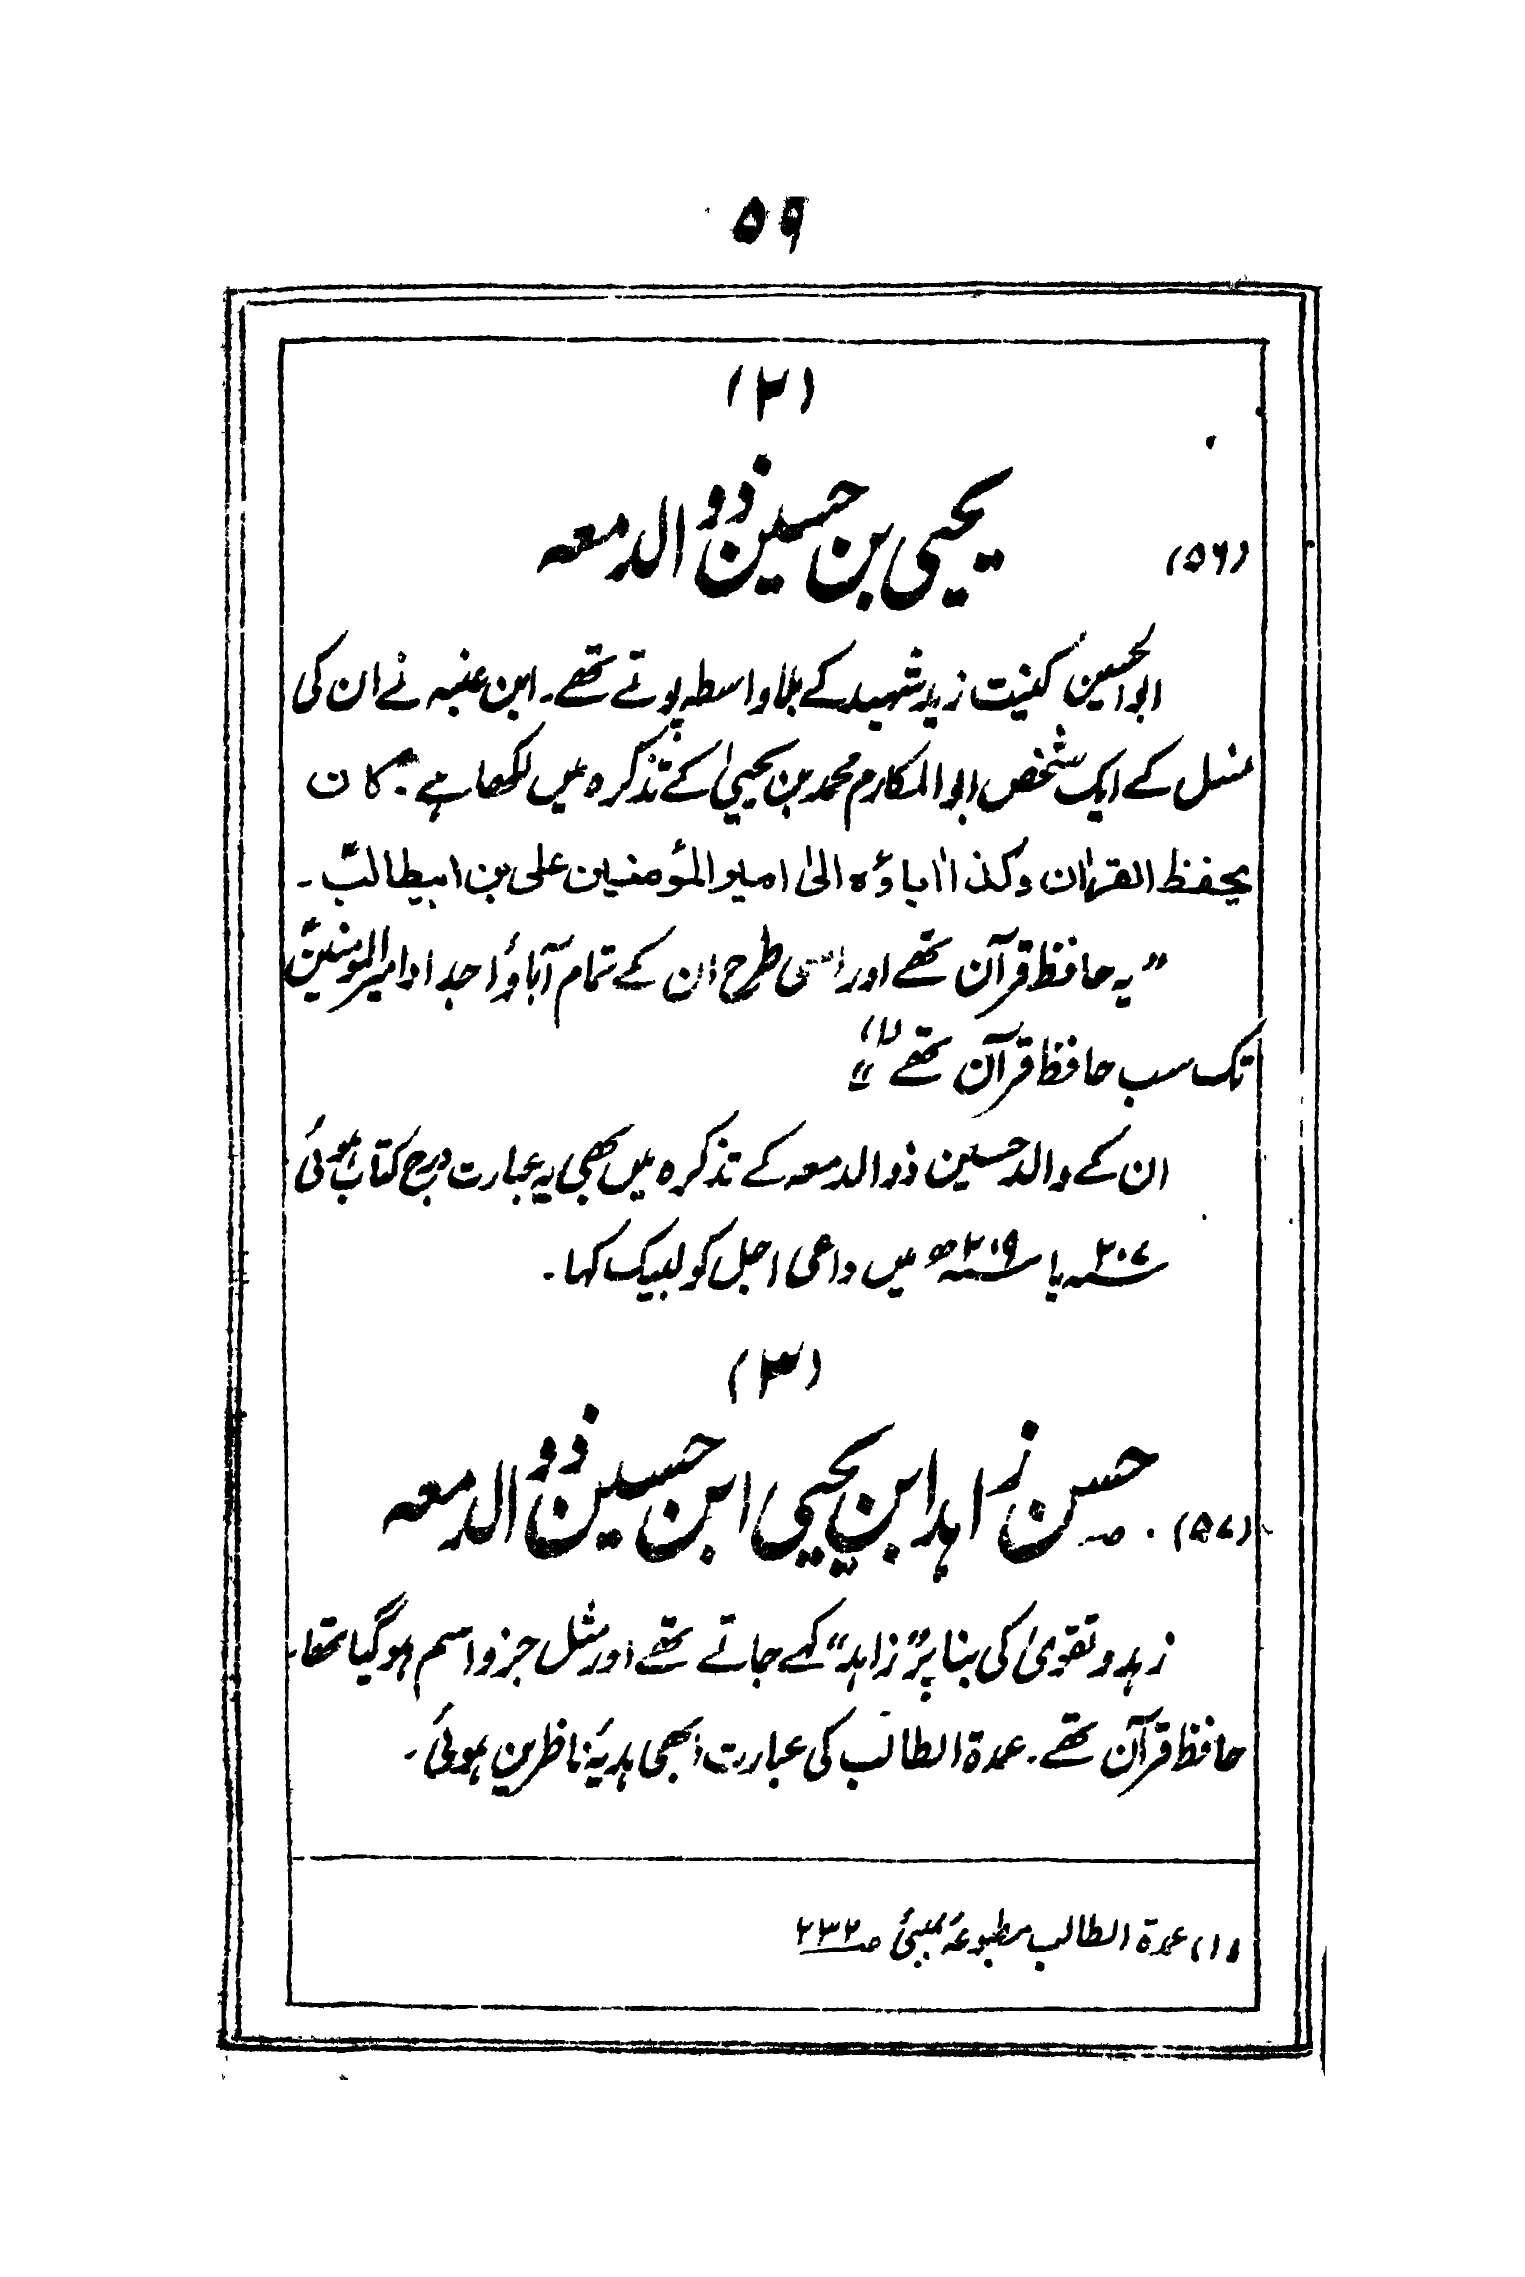 ۵۹
(۲)
(۵۶) یحییٰ بن حسین ذو الدمعہ
ابوالحسین کنیت زید شہید کے بلا واسطہ پوتے تھے۔ ابن عنبہ نے ان کی
نسل کے ایک شخص ابو المکارم محمد بن یحییٰ کے تذکرہ میں لکھا ہے۔ کان
یحفظ القراٰن وکذا اٰباؤہ الیٰ امیر المؤمنین علی بن ابیطالبؑ۔
”یہ حافظ قرآن تھے اور اسی طرح ان کے تمام آباؤ اجداد امیرالمومنینؑ
تک سب حافظ قرآن تھے“ (۱)
ان کے والد حسین ذو الدمعہ کے تذکرہ میں بھی یہ عبارت درج کتاب ہوئی
۲۰۷ھ یا ۲۰۹ھ میں داعی اجل کو لبیک کہا۔
(۳)
(۵۷) حسن زاہد ابن یحییٰ ابن حسین ذو الدمعہ
زہد و تقویٰ کی بنا پر ”زاہد“ کہے جاتے تھے اور مثل جزو اسم ہو گیا تھا۔
حافظ قرآن تھے۔ عمدۃ الطالب کی عبارت ابھی ہدیۂ ناظرین ہوئی۔
(۱) عمدۃ الطالب مطبوعۂ بمبئی ص۲۳۲